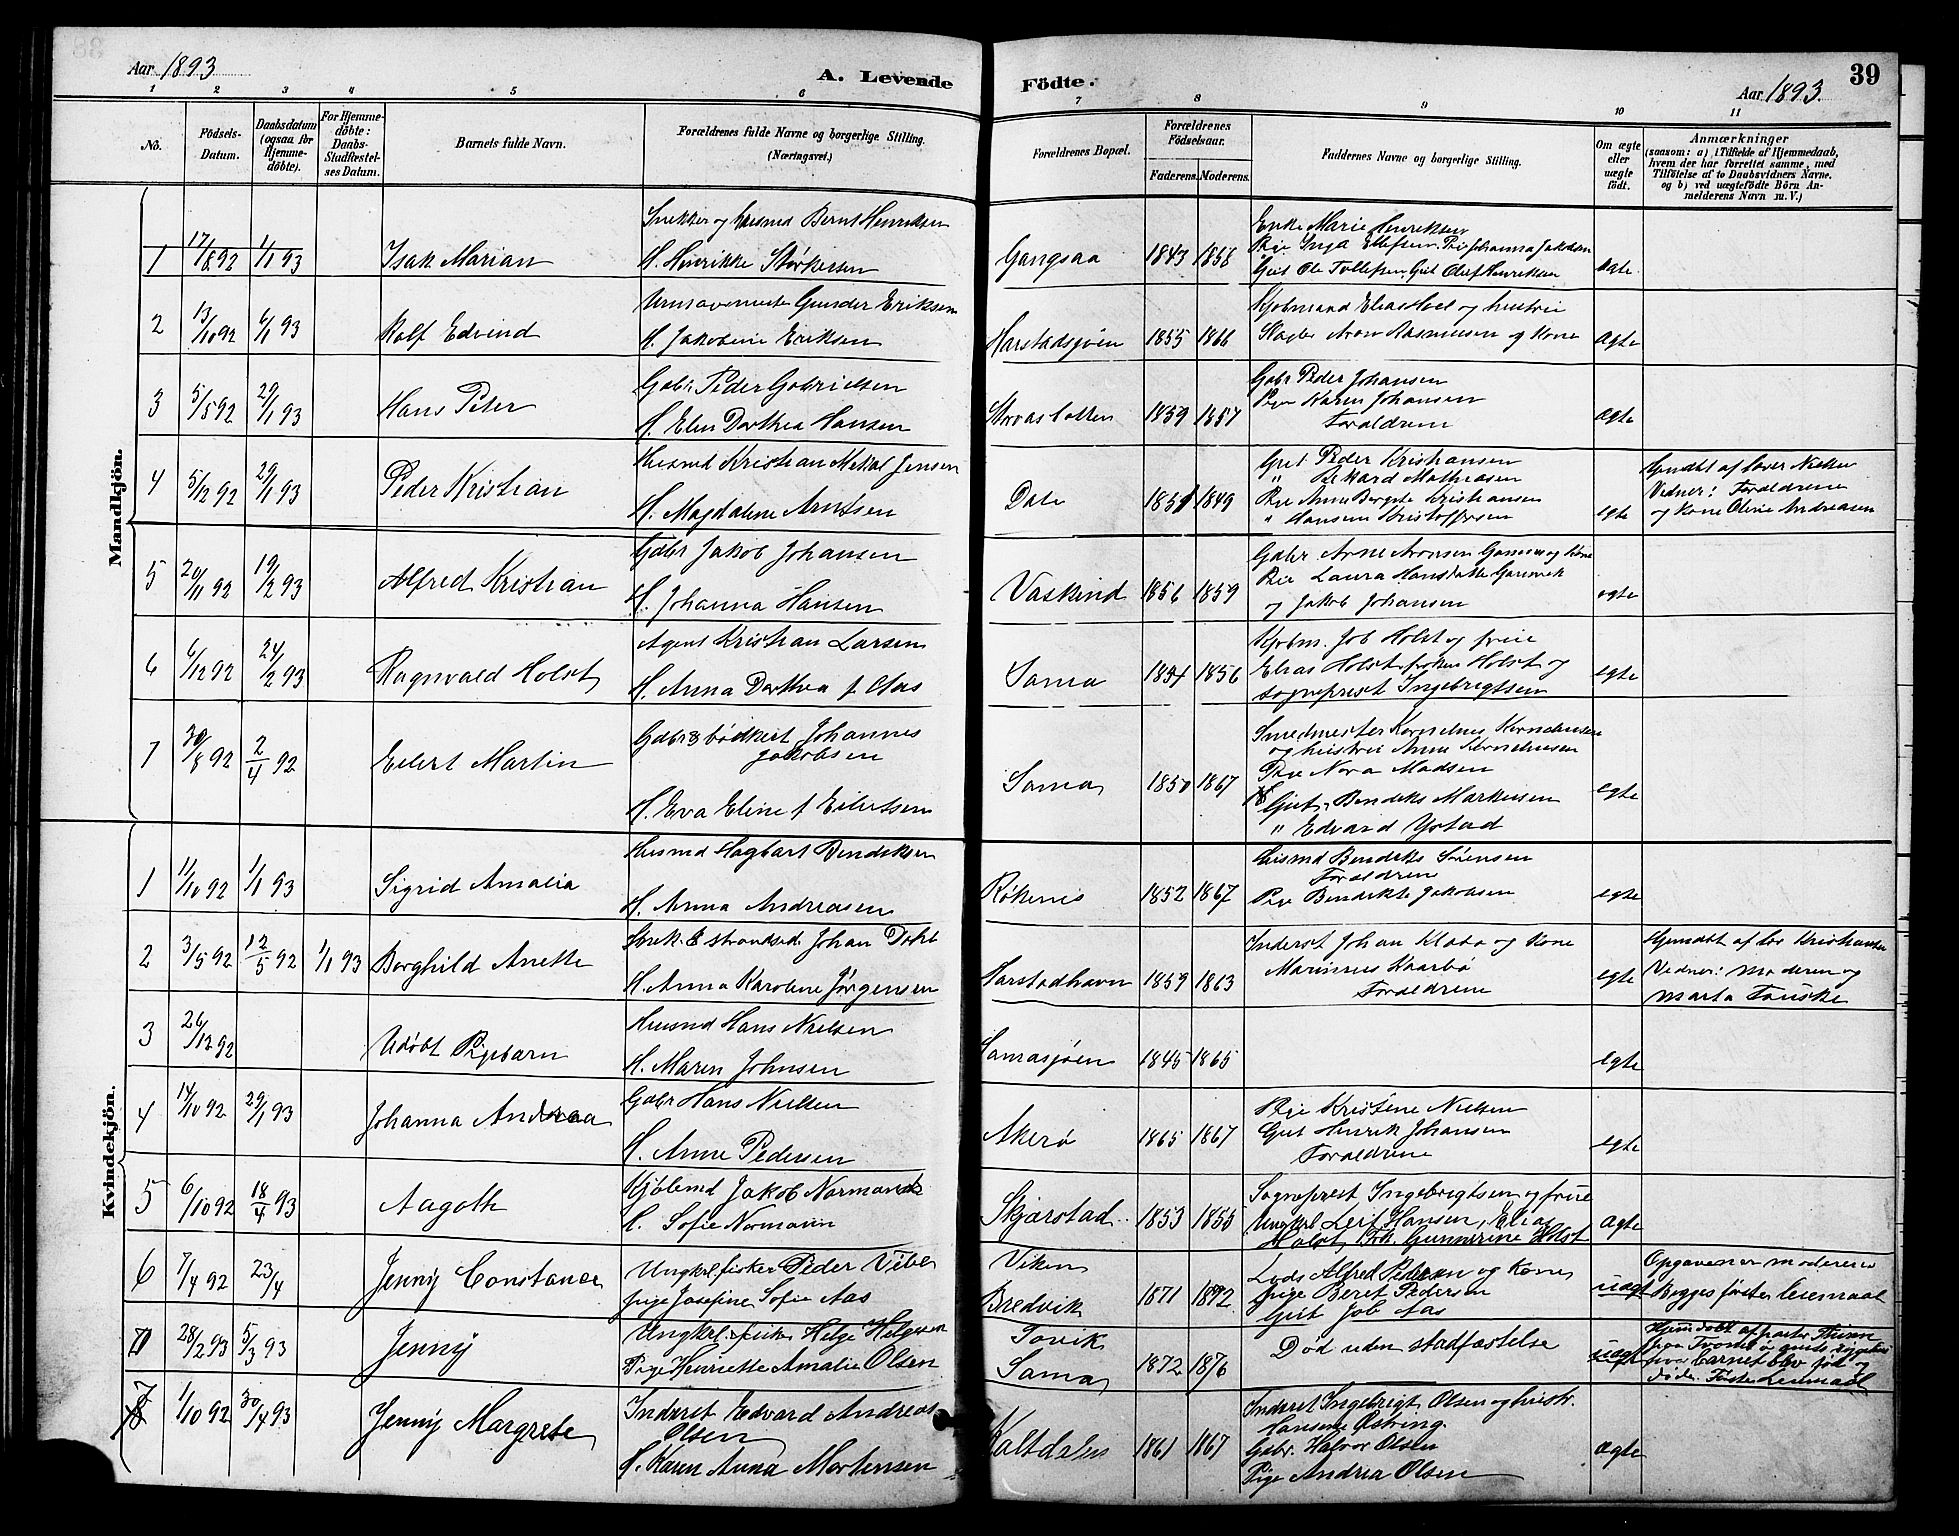 Aar 1893
A. Levende Födte.
Aar 1893.
39
1 2 3 4 5 6 7 8 9 10 11
No.
Födsels-Datum.
Daabsdatum (ogsaa for Hjemme-döbte).
For Hjemme-döbte: Daabs-Stadfæstel-ses Datum.
Barnets fulde Navn.
Forældrenes fulde Navne og borgerlige Stilling. (Næringsvei.)
Forældrenes Bopæl.
Forældrenes Födselsaar.
Faderens. Moderens.
Faddernes Navne og borgerlige Stilling.
Om ægte eller uægte födt.
Anmærkninger
(saasom: a) i Tilfælde af Hjemmedaab,
hvem der har forrettet samme, med
Tilföielse af to Daabsvidners Navne.
og b) ved uægtefödte Börn An-
melderens Navn m. V.)
Mandkjön.
1 17/8 92 1/1 93 Isak Marian
Snekker og husmd Bernt Henriksen
H. Henrikke Størkersen
Gangsaa 1843 1858
Enke Marie Henriksen
Pige Inga Ellefsen Pige Johanna Jakobsen
Gut Ole Tollefsen Gut Oluf Henriksen
ægte
2 13/10 92 6/1 93 Rolf Edvind
Gunder Eriksen
H. Jakobine Eriksen
Harstadsjøen 1855 1866
Kjøbmand Elias Hoel og hustru
Aron Rasmussen og Kone
ægte
3 5/5 92 29/1 93 Hans Peter
Gbr Peder Gabrielsen
H. Elen Dorthea Hansen
1859 1857
Gbr Peder Johansen
Pige Karen Johansen
Forældrene
ægte
4 5/12 92 29/1 93 Peder Kristian
Husmd Kristian Mikal Jensen
H. Magdalene Arntsen
Dale 1851 1849
Gut Peder Kristiansen
" Rikard Mathiasen
Pige Anne Bergete Kristiansen
" Hansine Kristoffersen
egte
Hjmdøbt af lærer Nielsen
Vidner: Forældrene
og Kone Oline Andreasen
5 20/11 92 19/2 93 Alfred Kristian
Gdbr Jakob Johansen
H. Johanna Hansen
Vaskind 1856 1859
Gdbr. Arne Aronsen og Kone
Pige Laura Hansdatter
og Jakob Johansen
egte
6 6/12 92 24/2 93 Ragnvald Holst
Agent Kristian Larsen
H. Anna Dorthea f. Aas
Sama 1854 1856
Kjøbm. Job Holst og frue
Elias Holst frøken Holst og
sogneprest Ingebrigtsen
egte
7 30/8 92 2/4 92 Eilert Martin
Gdbr & bødkert Johannes
Jakobsen
H. Eva Eline f Eilertsen
Sama 1850 1867
Smedmester Kornelius Korneliussen
og hustru Anne Korneliussen
Pige Nora Madsen
Gut Bendiks Markussen
" Edvard Ystad
egte
Kvindekjön.
1 11/10 92 1/1 93 Sigrid Amalia
Husmd Hagbart Bendiksen
H. Anna Andreasen
Røkenes 1852 1867
Husmd Bendiks Sørensen
Forældrene
Pige Bendikte Jakobsen
egte
2 3/5 92 12/5 92 1/1 93 Borghild Anette
Snek. & strandsid. Johan Dahl
H. Anna Karoline Jørgensen
Harstadhavn 1859 1863
Inderst Johan Klæbo og Kone
Marinus Kaarbø
Forældrene
egte
Hjmdøbt af lær Kristiansen
Vidner: moderen og
Marta Fauske
3 26/12 92 Udøbt Pigebarn
Husmd Hans Nielsen
H. Maren Johnsen
Samasjøen 1845 1865
egte
4 14/10 92 29/1 93 Johanna Andrea
Gdbr Hans Nielsen
H. Anne Pedersen
Akerø 1865 1867
Pige Kristine Nielsen
Gut Henrik Johansen
Forældrene
egte
5 6/10 92 18/4 93 Aagoth
Kjøbmd Jakob Normann
H. Sofie Normann
Skjærstad 1853 1855
Sogneprest Ingebrigtsen og frue
Ungkrl Leif Hansen, Elias
Holst, Frk. Gunnerine Holst
ægte
6 7/4 92 23/4 Jenny Constance
Ungkrl. fisker Peder Vibe
pige Josefine Sofie Aas
Viken
Bredvik 1871 1872
Lods Alfred Pedersen og Kone
pige Beret Pedersen
Gut Job Aas
uægt
Opgaven er moderens
Begges første leiermaal
28/2 93 5/3 93 Jenny
Ungkrl. fisker Helge Helgesen
Pige Henriette Amalie Olsen
Sørvik
Sama 1872 1876
Død uden stadfæstelse
uægt
7 1/10 92 30/4 93 Jenny Margrete
Inderst Edvard Andreas
Olsen
H. Karen Anna Mortensen
Kaltdalen 1861 1867
Inderst Ingebrigt Olsen og hustr.
Hansine Østring
Gdbr. Halvor Olsen
Pige Andrea Olsen
ægte